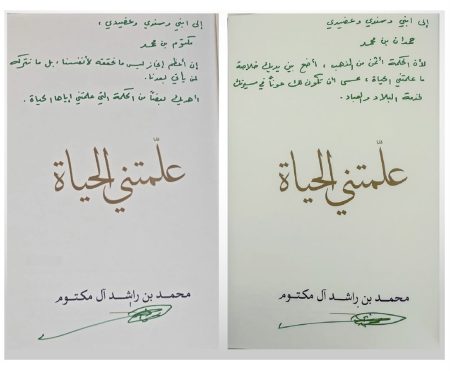 إلى ابني وسندي وعضيدي
حمدان بن محمد
لأن الحكمة أثمن من الذهب ، أضع بين يديك خلاصة
ما علمتني الحياة ، عسى أن تكون لك عوناً في مسيرتك
لخدمة البلاد والعباد.
علّمتني الحياة
محمد بن راشد آل مكتوم
إلى ابني وسندي وعضيدي ،
مكتوم بن محمد
إن أعظم إنجاز ليس ما نحققه لأنفسنا ، بل ما نتركه
لمن يأتي بعدنا.
أهديك بعضاً من الحكمة التي علمتني إياها الحياة.
علّمتني الحياة
محمد بن راشد آل مكتوم